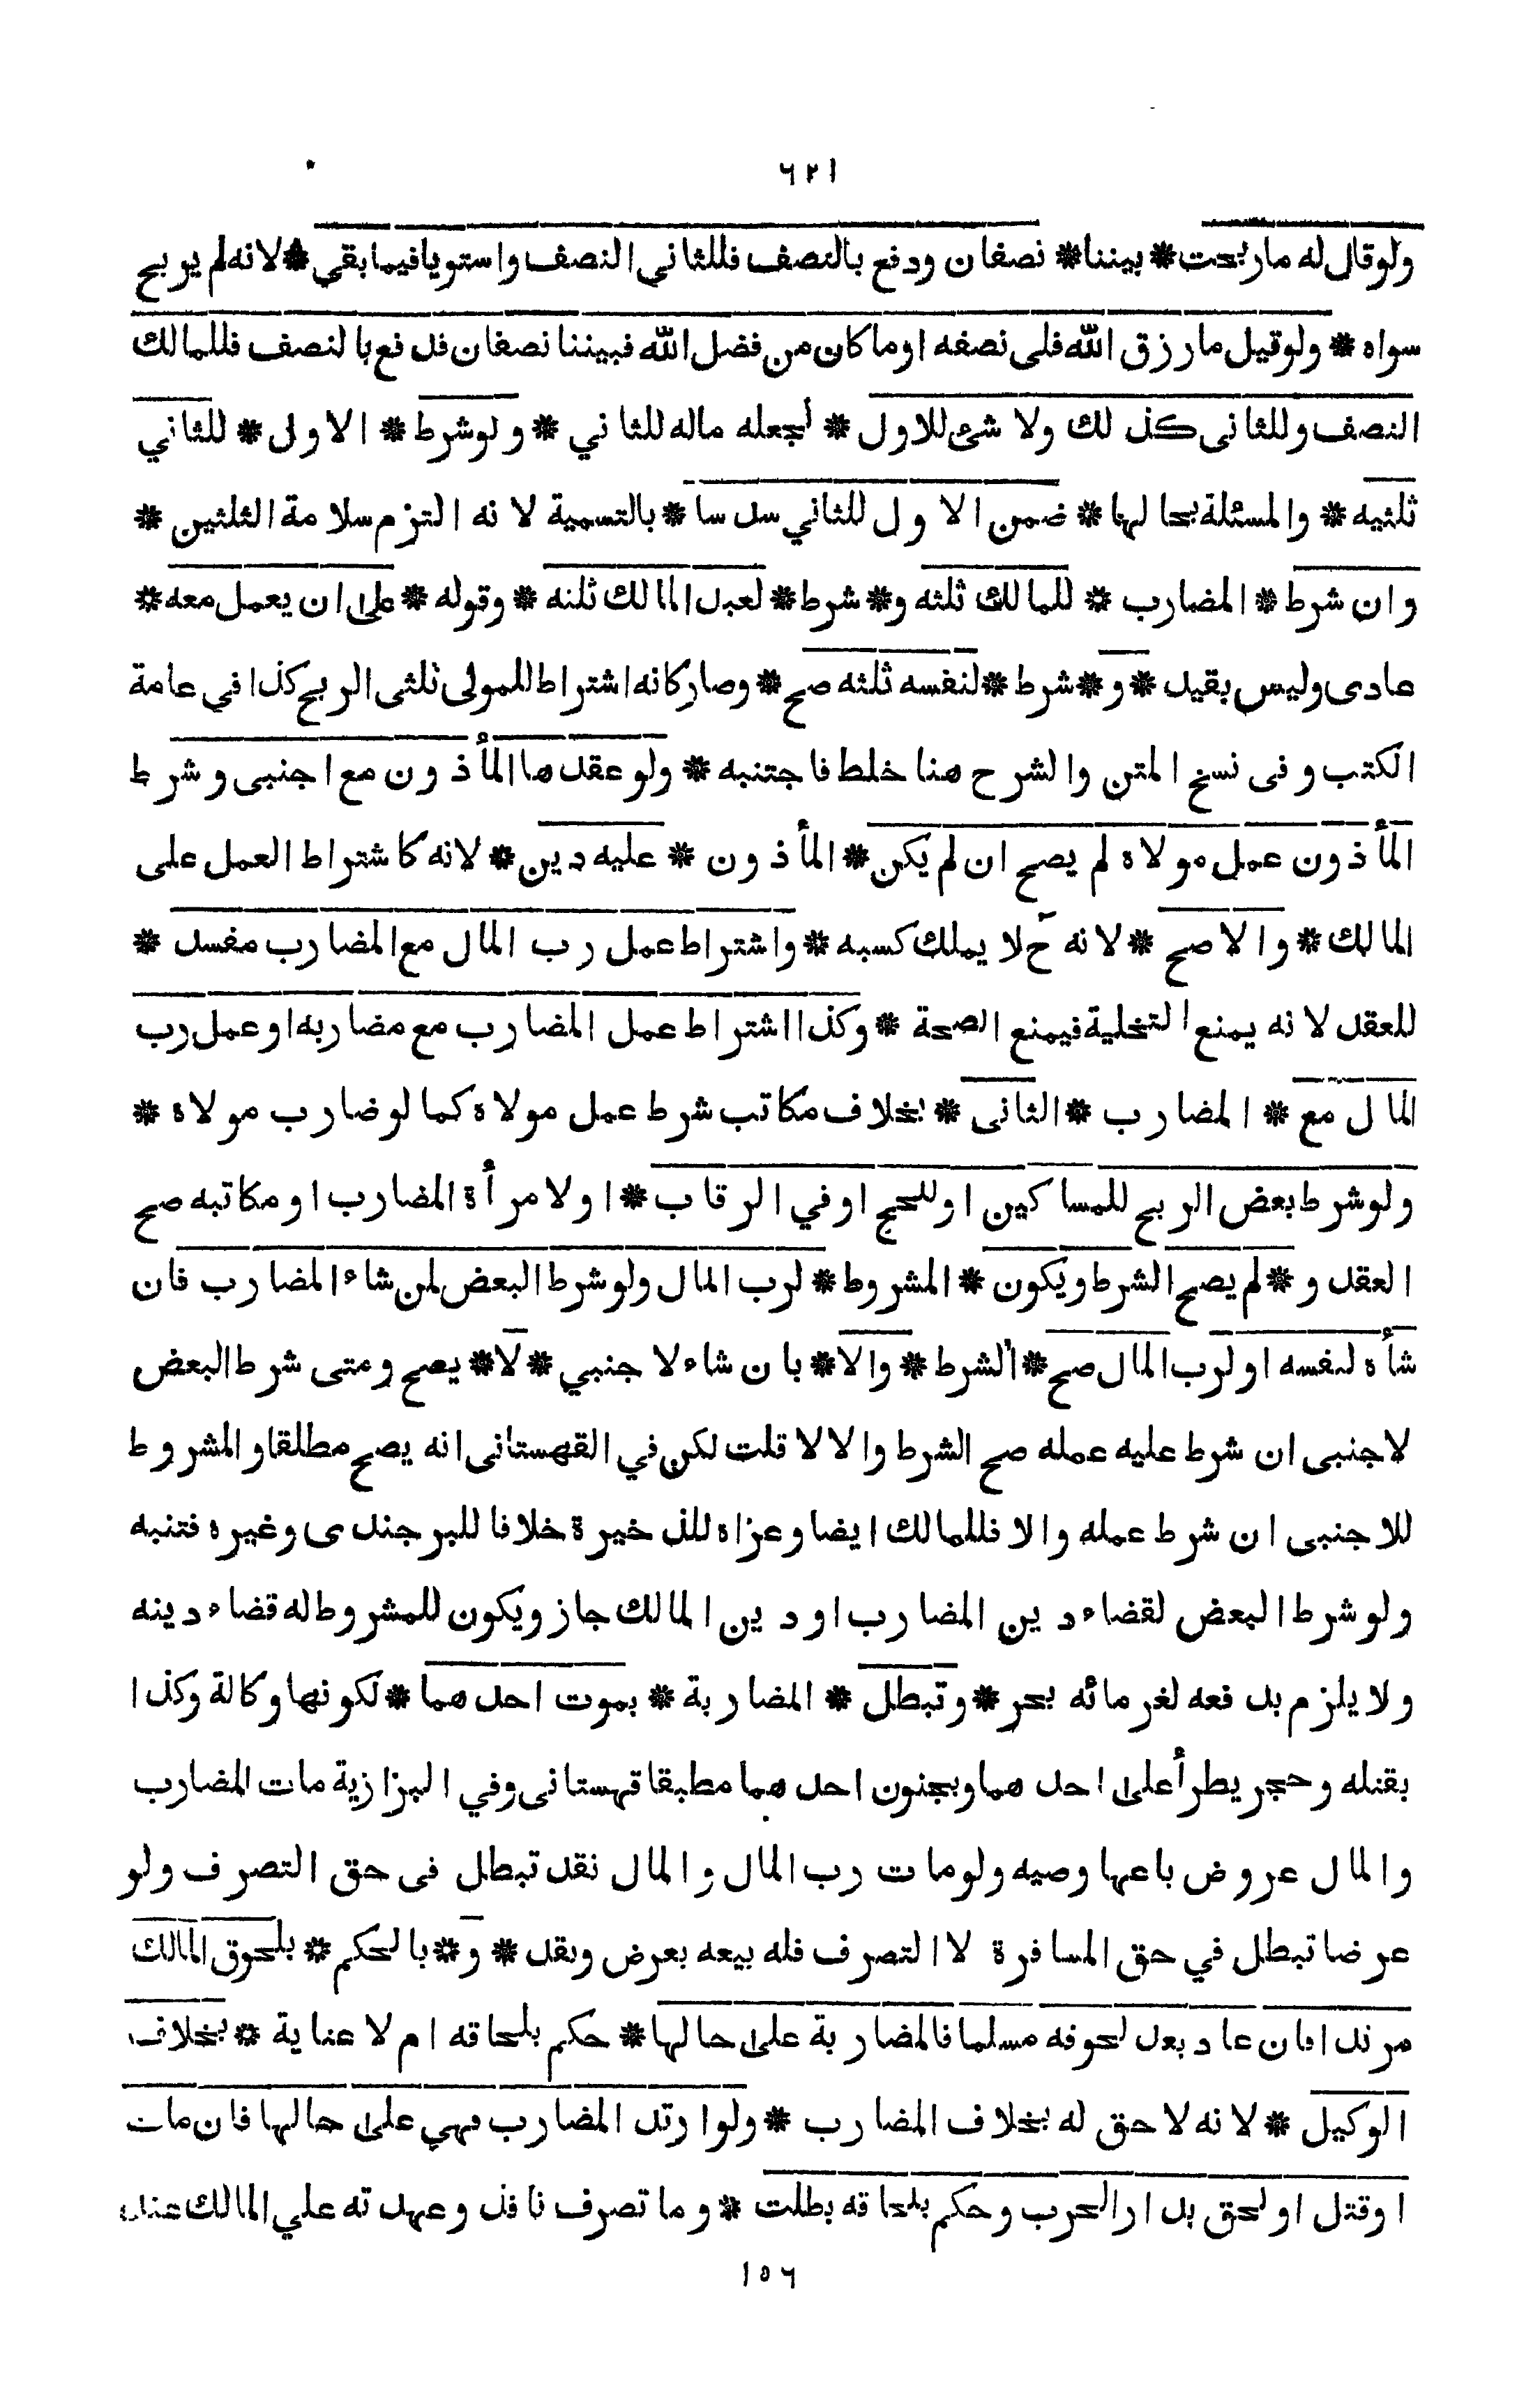 ٦٢١
ولو قال له ما ربحت * بيننا * نصفان ودفع بالنصف فللثاني النصف واستويا فيما بقي * لانه لم يربح
سواه * ولو قيل ما رزق الله فلى نصفه او ما كان من فضل الله فبيننا نصفان فدفع بالنصف فللمالك
النصف وللثانى كذلك ولا شئ للاول * لجعله ماله للثاني * ولو شرط * الاول * للثاني
ثلثيه * والمسئلة بحالها * ضمن الاول للثاني سدسا * بالتسمية لانه التزم سلامة الثلثين *
وان شرط * المضارب * للمالك ثلثه و * شرط * لعبد المالك ثلثه * وقوله * على ان يعمل معه *
عادى وليس بقيد * و * شرط * لنفسه ثلثه صح * وصار كانه اشتراط للمولى ثلثى الربح كذا في عامة
الكتب وفى نسخ المتن والشرح هنا خلط فاجتنبه * ولو عقدها المأذون مع اجنبى وشرط
المأذون عمل مولاه لم يصح ان لم يكن * المأذون * عليه دين * لانه كاشتراط العمل على
المالك * والا صح * لانه ح لا يملك كسبه * واشتراط عمل رب المال مع المضارب مفسد *
للعقد لانه يمنع التخلية فيمنع الصحة * وكذا اشتراط عمل المضارب مع مضاربه او عمل رب
المال مع * المضارب * الثانى * بخلاف مكاتب شرط عمل مولاه كما لو ضارب مولاه *
ولو شرط بعض الربح للمساكين او للحج او في الرقاب * او لامرأة المضارب او مكاتبه صح
العقد و * لم يصح الشرط ويكون * المشروط * لرب المال ولو شرط البعض لمن شاء المضارب فان
شأه لنفسه او لرب المال صح * الشرط * والا * بان شاء لاجنبي * لا * يصح ومتى شرط البعض
لاجنبى ان شرط عليه عمله صح الشرط والا لا قلت لكن في القهستانى انه يصح مطلقا والمشروط
للاجنبى ان شرط عمله والا فللمالك ايضا وعزاه للذخيرة خلافا للبرجندى وغيره فتنبه
ولو شرط البعض لقضاء دين المضارب او دين المالك جاز ويكون للمشروط له قضاء دينه
ولا يلزم بدفعه لغرمائه بحر * وتبطل * المضاربة * بموت احدهما * لكونها وكالة وكذا
بقتله وحجر يطرأ على احدهما وبجنون احدهما مطبقا قهستانى وفي البزازية مات المضارب
والمال عروض باعها وصيه ولو مات رب المال والمال نقد تبطل فى حق التصرف ولو
عرضا تبطل في حق المسافرة لا التصرف فله بيعه بعرض ونقد * و * بالحكم * بلحوق المالك
مرتدا فان عاد بعد لحوقه مسلما فالمضاربة على حالها * حكم بلحاقه ام لا عناية * بخلاف
الوكيل * لانه لا حق له بخلاف المضارب * ولو ارتد المضارب فهي على حالها فان مات
او قتل او لحق بدار الحرب وحكم بلحاقه بطلت * وما تصرف نافذ وعهدته علي المالك عند
١٥٦